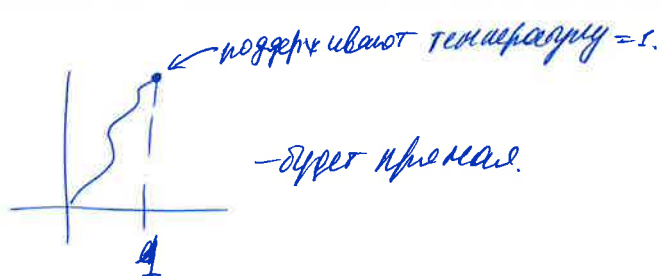 поддерживают температуру = 1.
- будет прямая.
1